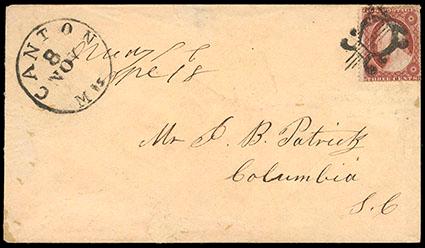 CANTON
8
NOV
Ms
Mr J. B. Patrick
Columbia
S. C
THREE CENTS